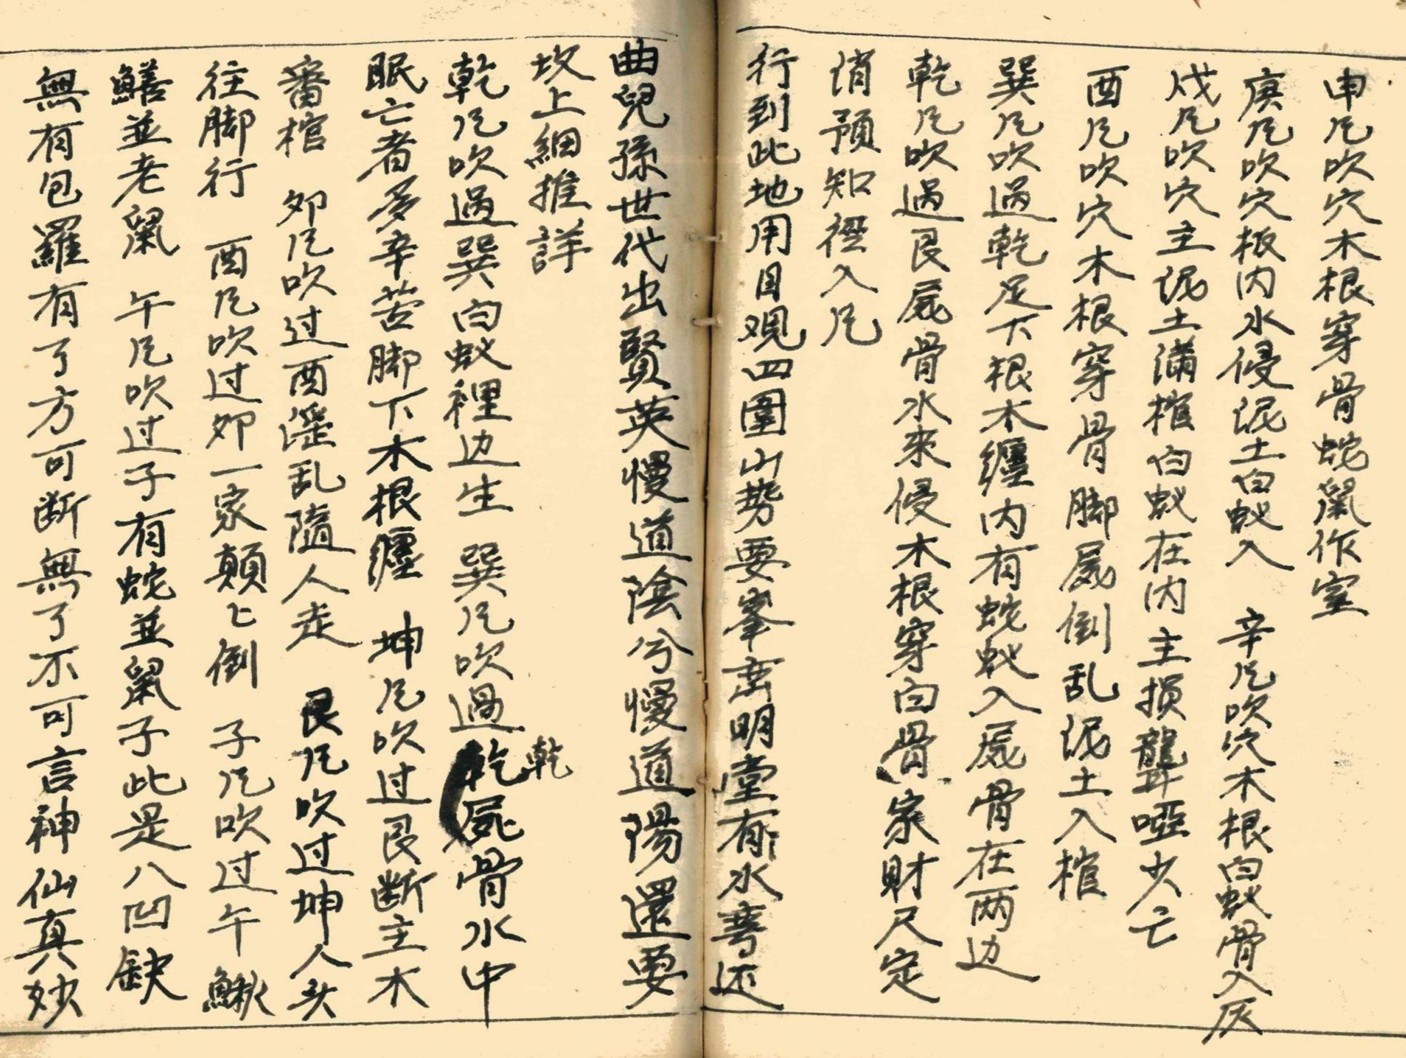 申凡吹穴木根穿骨蛇鼠作室
庚凡吹穴板内水侵泥土白蚁入　辛凡吹穴木根白蚁骨入灰
戌凡吹穴主泥土满棺白蚁在内主损聾哑少亡
酉凡吹穴木根穿骨脚屍倒乱泥土入棺
巽凡吹過乾足下根木纏内有蛇蚁入屍骨在两边
乾凡吹過艮屍骨水來侵木根穿白骨家財尺定
消預知裡入凡
行到此地用目观四圍山势要峯峦明堂有水弯还
曲兒孫世代出賢英慢道陰兮慢道陽還要
坟上細推詳
乾凡吹過巽白蚁裡边生　巽凡吹過乾屍骨水中
乾
眠亡者多辛苦脚下木根纏　坤凡吹过艮断主木
番棺　夘凡吹过酉淫乱隨人走　艮凡吹过坤人头
往脚行　酉凡吹过夘一家顛匕倒　子凡吹过午鰍
鱔並老鼠　午凡吹过子有蛇並鼠子此是八凹缺
無有包羅有了方可断無了不可言神仙真妙